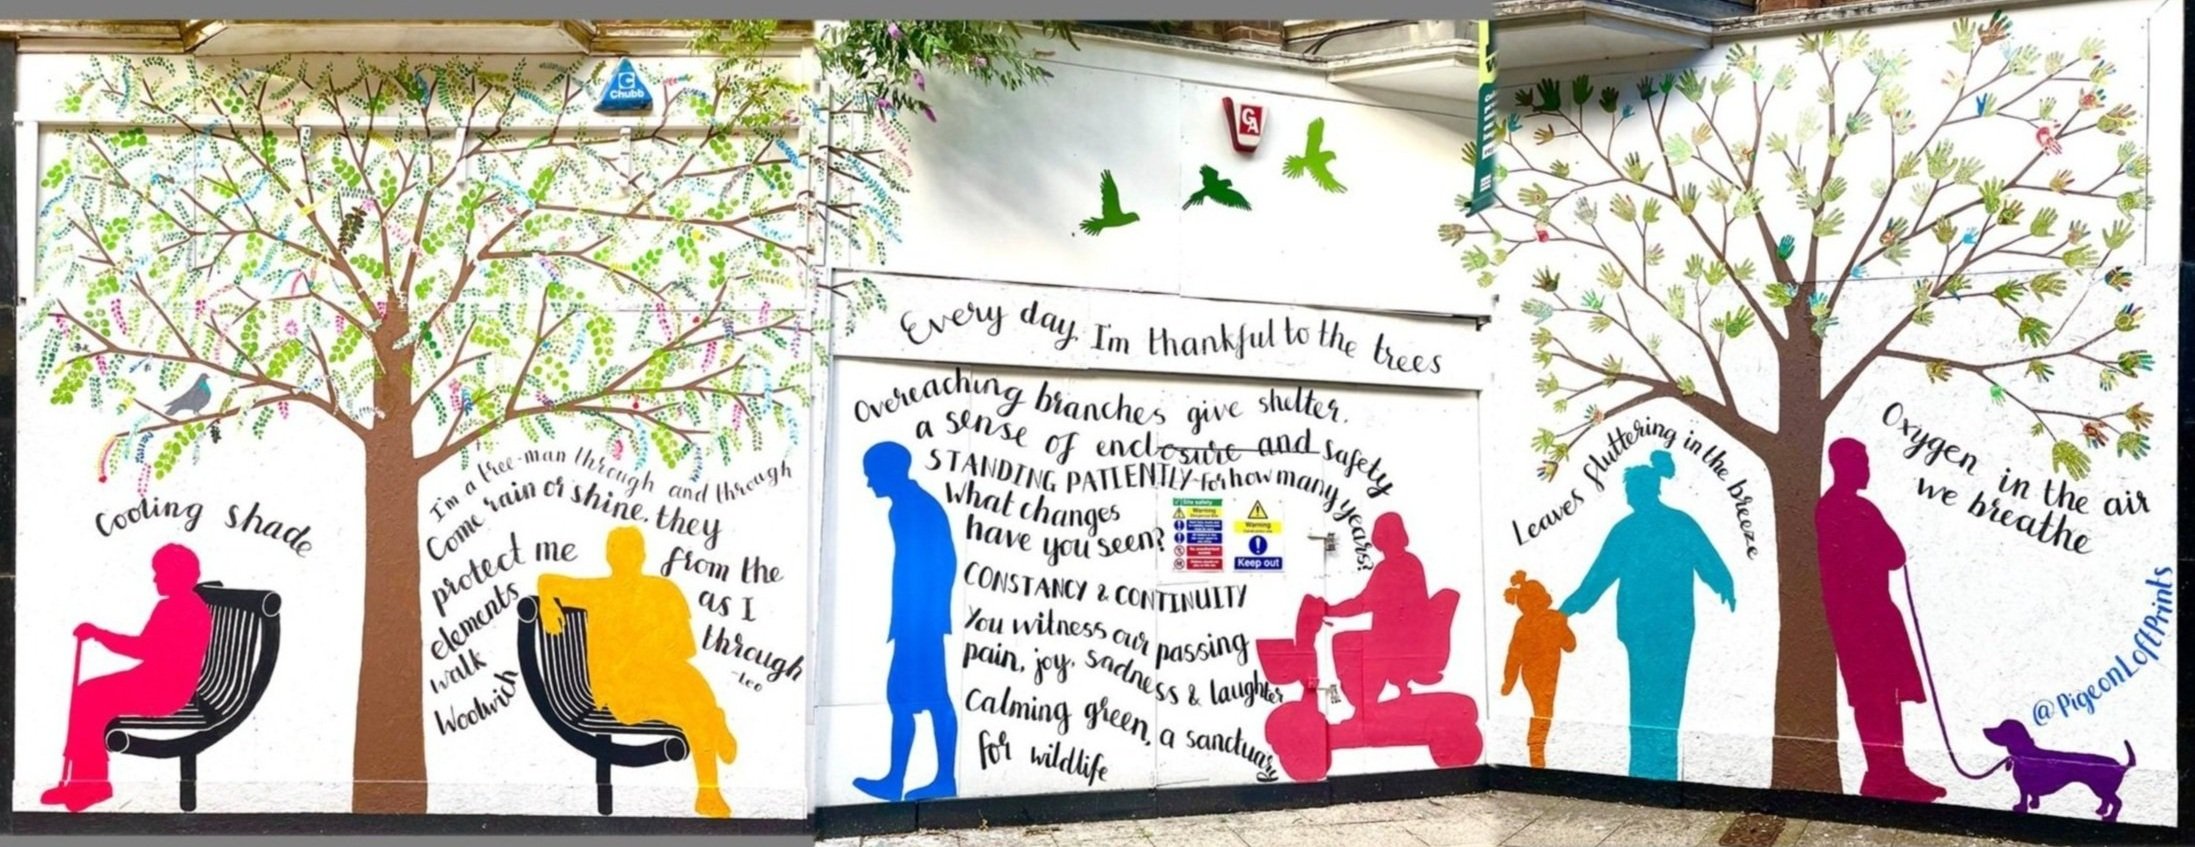 Chubb
GA
Cooling shade
I'm a tree-man through and through
Come rain or shine, they
protect me from the
elements as I
walk through
Woolwich -Leo
Every day I'm thankful to the trees
Overeaching branches give shelter,
a sense of enclosure and safety
STANDING PATIENTLY - for how many years?
What changes
have you seen?
Site safety
Warning
Warning
Keep out
CONSTANCY & CONTINUITY
You witness our passing
pain, joy, sadness & laughter
Calming green, a sanctuary
for wildlife
Leaves fluttering in the breeze
Oxygen in the air
we breathe
@PigeonLoftPrints